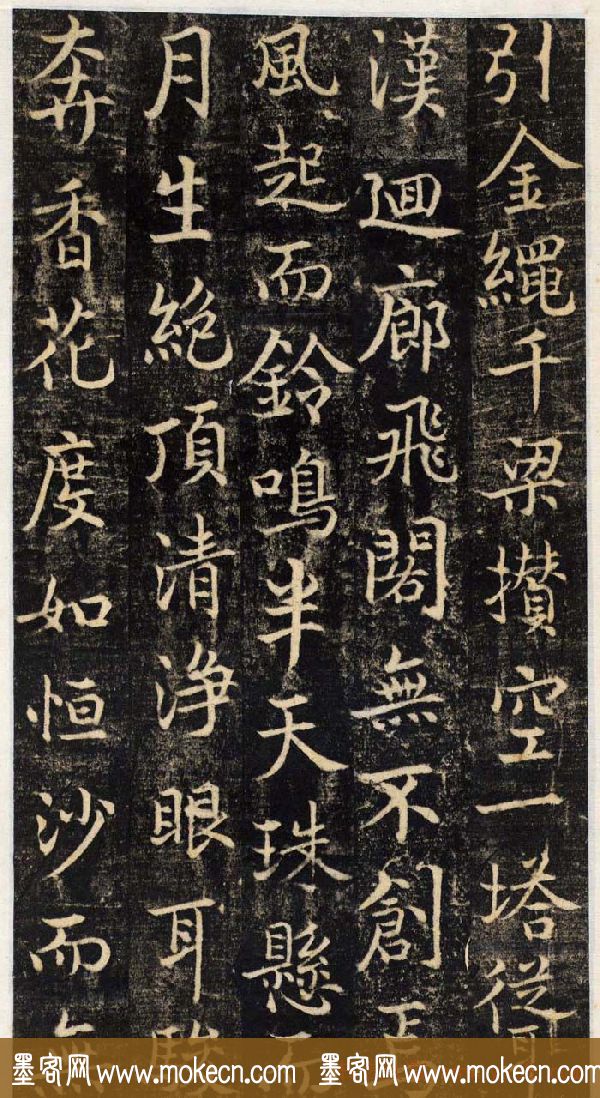 引金繩千梁攢空一塔從
漢廻廊飛閣無不創焉
風起而鈴鳴半天珠懸而
月生絶頂清浄眼耳駿
奔香花度如恒沙而無
墨客网 www.mokecn.com 墨客网 www.mokecn.com